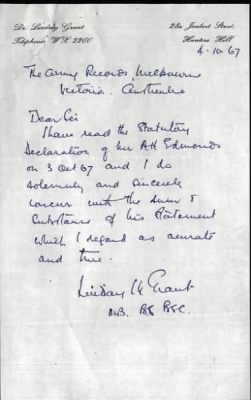 Dr. Lindsay Grant
Telephone WX 2200
28a Joubert Street
Hunters Hill
4-10-67
The Army Records, Melbourne
Victoria. Australia
Dear Sir
I have read the Statutory
Declaration of Mr A H Edmonds
on 3 Oct 67 and I do
solemnly and sincerely
concur with the sum &
substance of his statement
which I regard as accurate
and true.
Lindsay Grant
M.B. BS BSc.